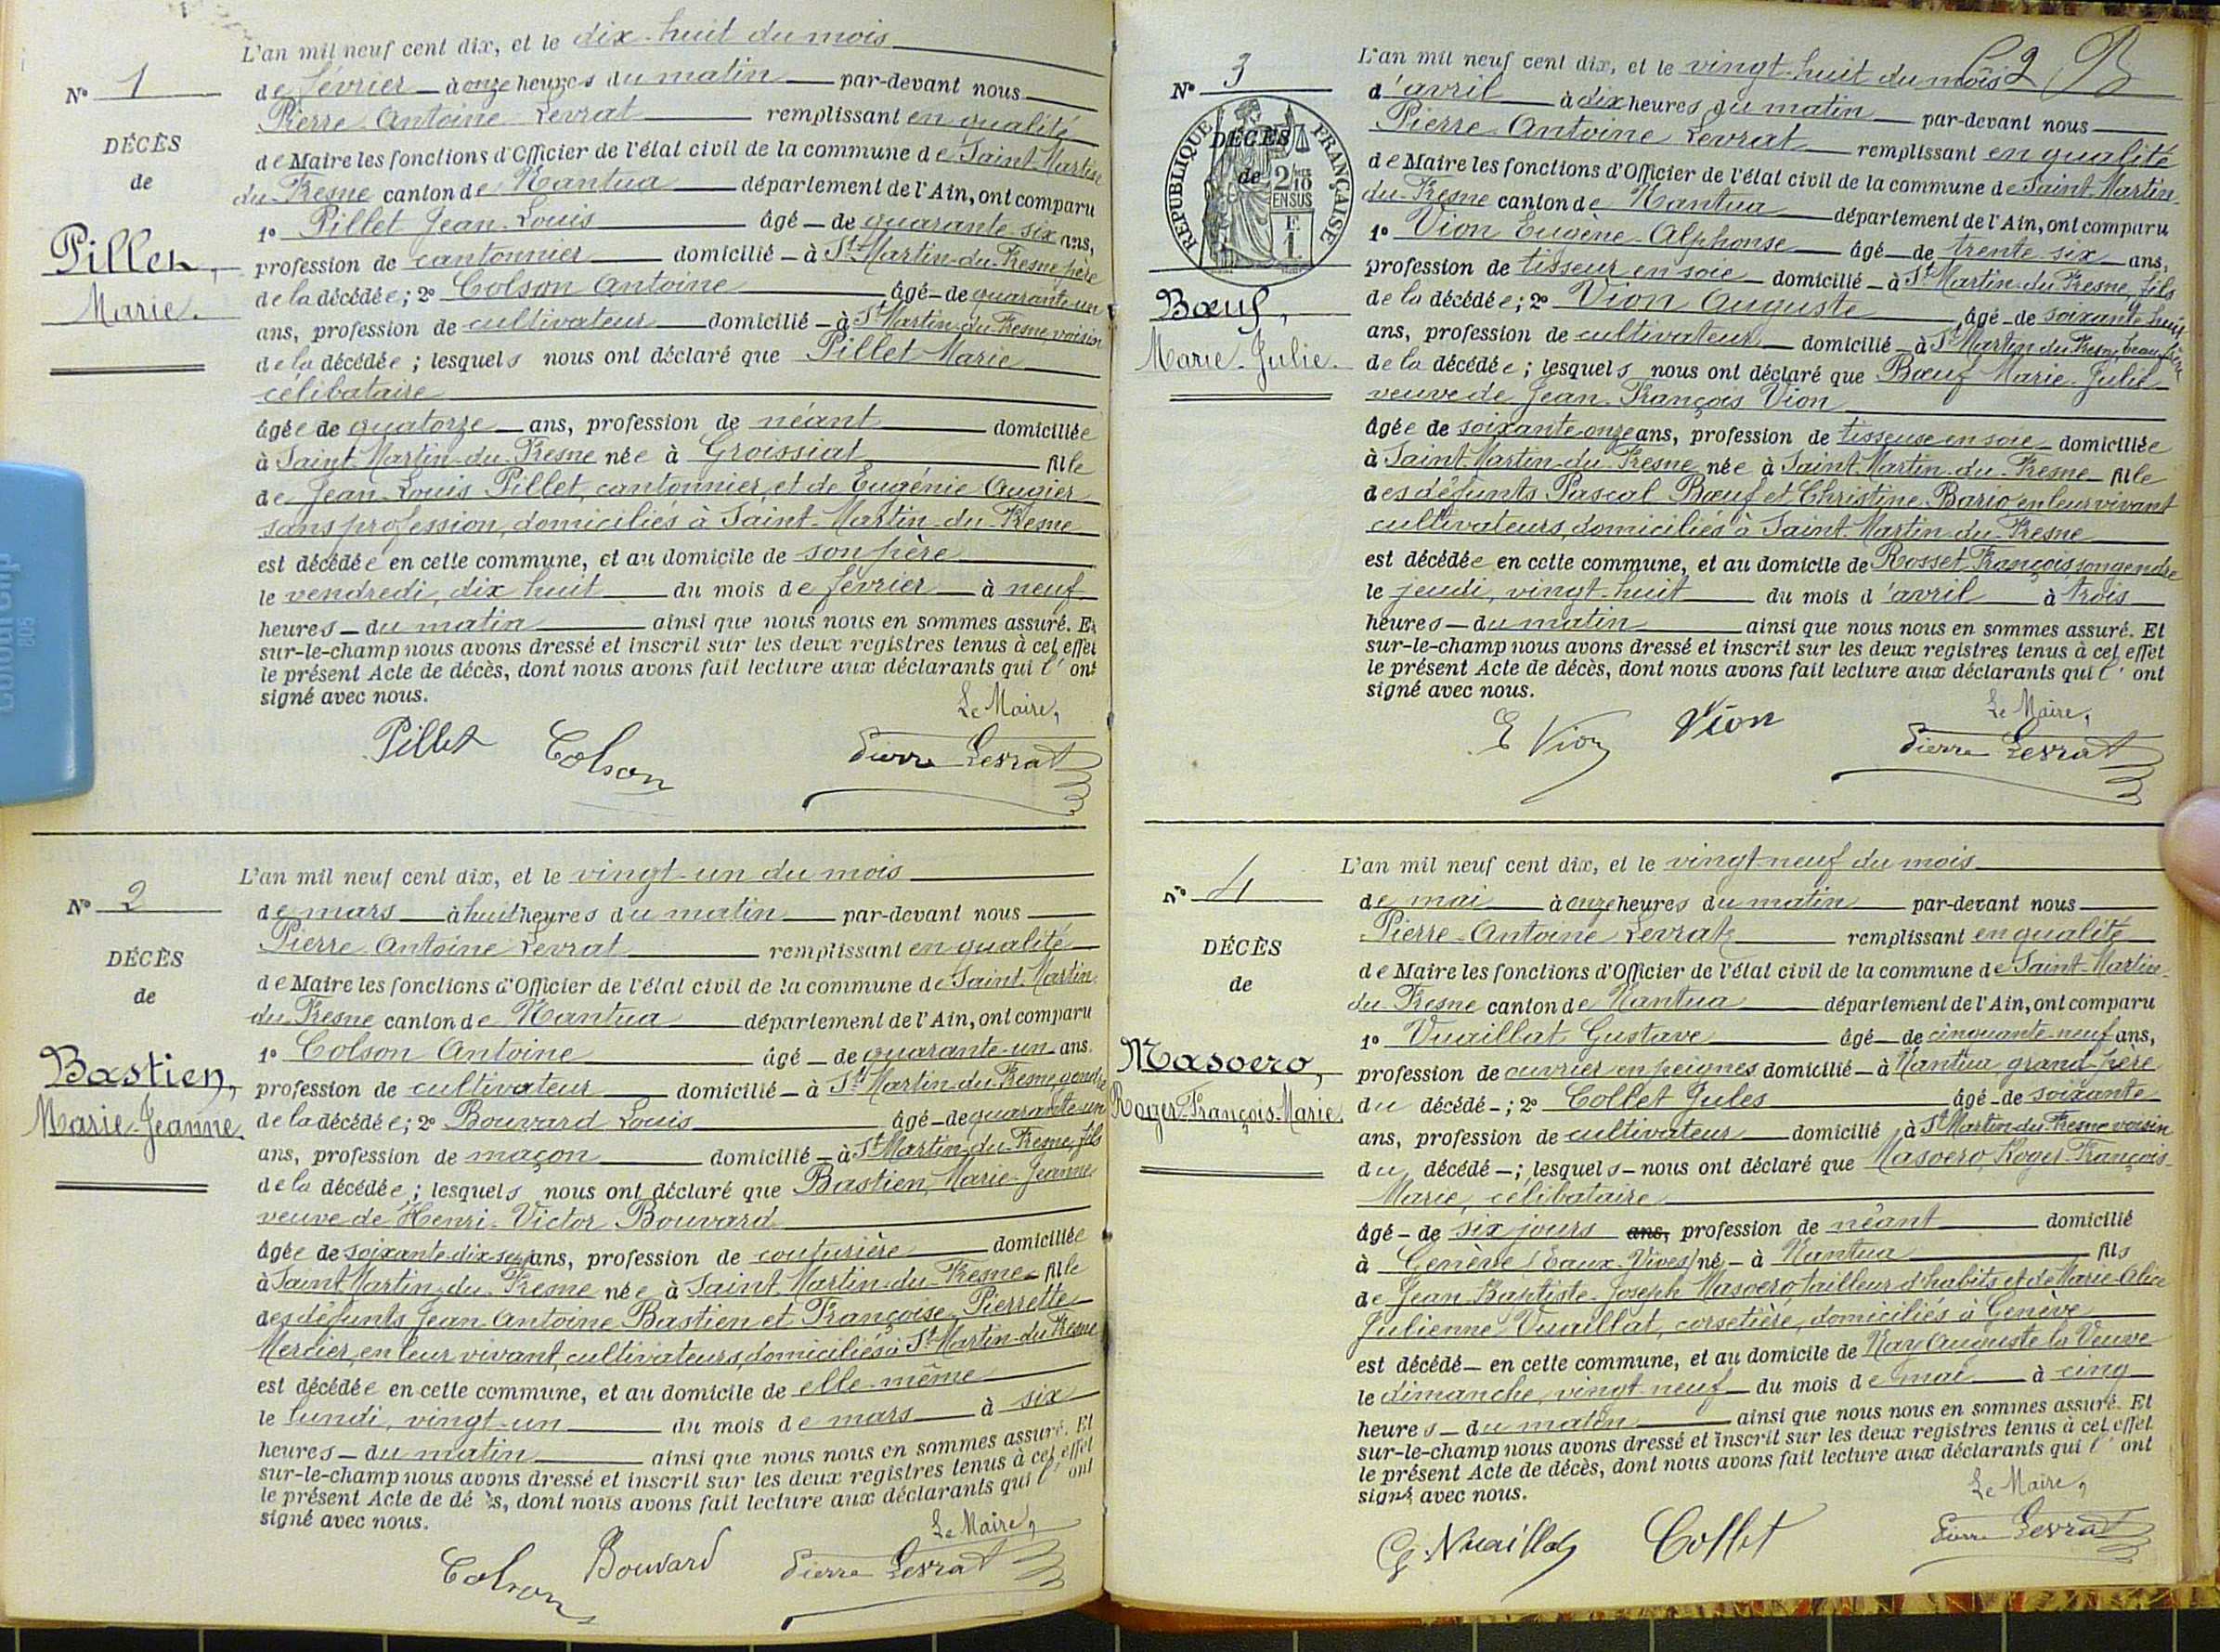 L'an mil neuf cent dix, et le dix-huit du mois
N° 1
de février à onze heures du matin par-devant nous
Pierre-Antoine Levrat remplissant en qualité
DÉCÈS
de Maire les fonctions d'Officier de l'état civil de la commune de Saint-Martin
de
du-Fresne canton de Nantua département de l'Ain, ont comparu
1° Pillet Jean-Louis âgé de quarante-six ans,
Pillet,
profession de cantonnier domicilié à St-Martin-du-Fresne, père
Marie.
de la décédée; 2° Colson Antoine âgé de quarante-un
ans, profession de cultivateur domicilié à St-Martin-du-Fresne, voisin
de la décédée; lesquels nous ont déclaré que Pillet Marie
célibataire
âgée de quatorze ans, profession de néant domiciliée
à Saint-Martin-du-Fresne née à Groissiat fille
de Jean-Louis Pillet, cantonnier, et de Eugénie Augier
sans profession, domiciliés à Saint-Martin-du-Fresne
est décédée en cette commune, et au domicile de son père
le vendredi, dix-huit du mois de février à neuf
heures du matin ainsi que nous nous en sommes assuré. Et
sur-le-champ nous avons dressé et inscrit sur les deux registres tenus à cet effet
le présent Acte de décès, dont nous avons fait lecture aux déclarants qui l'ont
signé avec nous.
Le Maire,
Pillet Colson Pierre Levrat
L'an mil neuf cent dix, et le vingt-un du mois
N° 2
de mars à huit heures du matin par-devant nous
Pierre-Antoine Levrat remplissant en qualité
DÉCÈS
de Maire les fonctions d'Officier de l'état civil de la commune de Saint-Martin
de
du-Fresne canton de Nantua département de l'Ain, ont comparu
1° Colson Antoine âgé de quarante-un ans.
Bastien,
profession de cultivateur domicilié à St-Martin-du-Fresne, gendre
Marie-Jeanne.
de la décédée; 2° Bouvard Louis âgé de quarante-un
ans, profession de maçon domicilié à St-Martin-du-Fresne, fils
de la décédée; lesquels nous ont déclaré que Bastien, Marie-Jeanne
veuve de Henri-Victor Bouvard
âgée de soixante-dix-sept ans, profession de couturière domiciliée
à Saint-Martin-du-Fresne née à Saint-Martin-du-Fresne fille
des défunts Jean-Antoine Bastien et Françoise-Pierrette
Mercier, en leur vivant, cultivateurs, domiciliés à St-Martin-du-Fresne
est décédée en cette commune, et au domicile de elle-même
le lundi, vingt-un du mois de mars à six
heures du matin ainsi que nous nous en sommes assuré. Et
sur-le-champ nous avons dressé et inscrit sur les deux registres tenus à cet effet
le présent Acte de dé ès, dont nous avons fait lecture aux déclarants qui l'ont
signé avec nous.
Le Maire,
Colson Bouvard Pierre Levrat
L'an mil neuf cent dix, et le vingt-huit du mois 2
N° 3
d'avril à dix heures du matin par-devant nous
Pierre-Antoine Levrat remplissant en qualité
RÉPUBLIQUE FRANÇAISE
2/10 EN SUS
F 1.
DÉCÈS
de Maire les fonctions d'Officier de l'état civil de la commune de Saint-Martin
de
du-Fresne canton de Nantua département de l'Ain, ont comparu
1° Vion Eugène-Alphonse âgé de trente-six ans,
profession de tisseur en soie domicilié à St-Martin-du-Fresne, fils
Bœuf,
de la décédée; 2° Vion Auguste âgé de soixante-huit
Marie-Julie.
ans, profession de cultivateur domicilié à St-Martin-du-Fresne, beau-frère
de la décédée; lesquels nous ont déclaré que Bœuf Marie-Julie
veuve de Jean-François Vion
âgée de soixante-onze ans, profession de tisseuse en soie domiciliée
à Saint-Martin-du-Fresne née à Saint-Martin-du-Fresne fille
des défunts Pascal Bœuf et Christine Bario, en leur vivant
cultivateurs, domiciliés à Saint-Martin-du-Fresne
est décédée en cette commune, et au domicile de Rosset François, son gendre
le jeudi, vingt-huit du mois d'avril à trois
heures du matin ainsi que nous nous en sommes assuré. Et
sur-le-champ nous avons dressé et inscrit sur les deux registres tenus à cet effet
le présent Acte de décès, dont nous avons fait lecture aux déclarants qui l'ont
signé avec nous.
Le Maire,
E Vion Vion Pierre Levrat
L'an mil neuf cent dix, et le vingt-neuf du mois
N° 4
de mai à onze heures du matin par-devant nous
Pierre-Antoine Levrat remplissant en qualité
DÉCÈS
de Maire les fonctions d'Officier de l'état civil de la commune de Saint-Martin
de
du-Fresne canton de Nantua département de l'Ain, ont comparu
1° Vuaillat Gustave âgé de cinquante-neuf ans,
Masoero,
profession de ouvrier en peignes domicilié à Nantua grand-père
Roger-François-Marie.
du décédé; 2° Collet Jules âgé de soixante
ans, profession de cultivateur domicilié à St-Martin-du-Fresne voisin
du décédé; lesquels nous ont déclaré que Masoero, Roger-François-
Marie, célibataire
âgé de six jours ans, profession de néant domicilié
à Genève (Eaux-Vives) né à Nantua fils
de Jean-Baptiste-Joseph Masoero, tailleur d'habits et de Marie-Alice
Julienne Vuaillat, corsetière, domiciliés à Genève
est décédé en cette commune, et au domicile de Nay Auguste la Veuve
le dimanche, vingt-neuf du mois de mai à cinq
heures du matin ainsi que nous nous en sommes assuré. Et
sur-le-champ nous avons dressé et inscrit sur les deux registres tenus à cet effet
le présent Acte de décès, dont nous avons fait lecture aux déclarants qui l'ont
signé avec nous.
Le Maire,
G. Vuaillat Collet Pierre Levrat